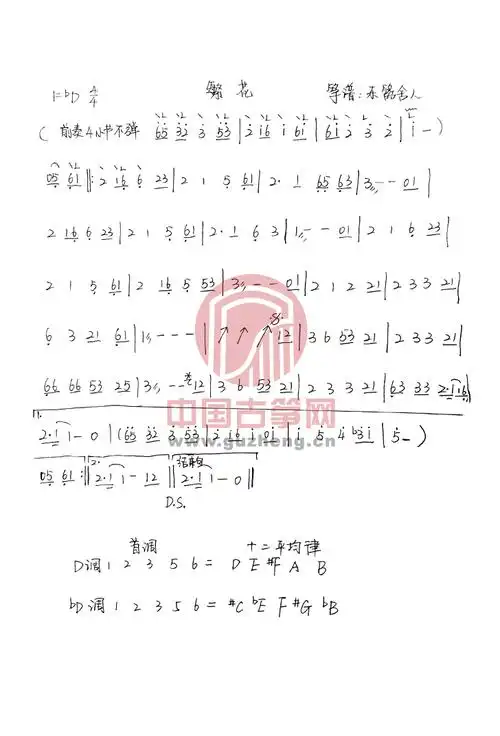 1=bD 4/4 繁花 筝谱:
(前奏4小节不弹 65 32 3 53 | 2 16 1 61 | 61 2 3 2 | 1 - )
05 61 ‖: 2 16 6 23 | 2 1 5 61 | 2· 1 65 63 | 3 - - 01 |
2 16 6 23 | 2 1 5 61 | 2·1 6 3 | 1 - - 01 | 2 1 6 23 |
2 1 5 61 | 2 16 5 53 | 3 - - 01 | 2 1 2 21 | 2 3 3 21 |
6 3 21 61 | 1 - - - | ↗ ↗ ↗ 12 | 3 6 53 21 | 2 33 21 |
66 66 53 25 | 3 - - 12 | 3 6 53 21 | 2 3 3 21 | 63 33 2·1 16 |
1.
2·1 1 - 0 | (65 32 3 53 | 2 16 1 01 | 1 5 4 b3 1 | 5 - )
05 61 :‖ 2. 2·1 1 - 12 ‖ 结束句 2·1 1 - 0 ‖
D.S.
首调 十二平均律
D调 1 2 3 5 6 = D E #F A B
bD调 1 2 3 5 6 = #C bE F #G bB
中国古筝网
www.guzheng.cn